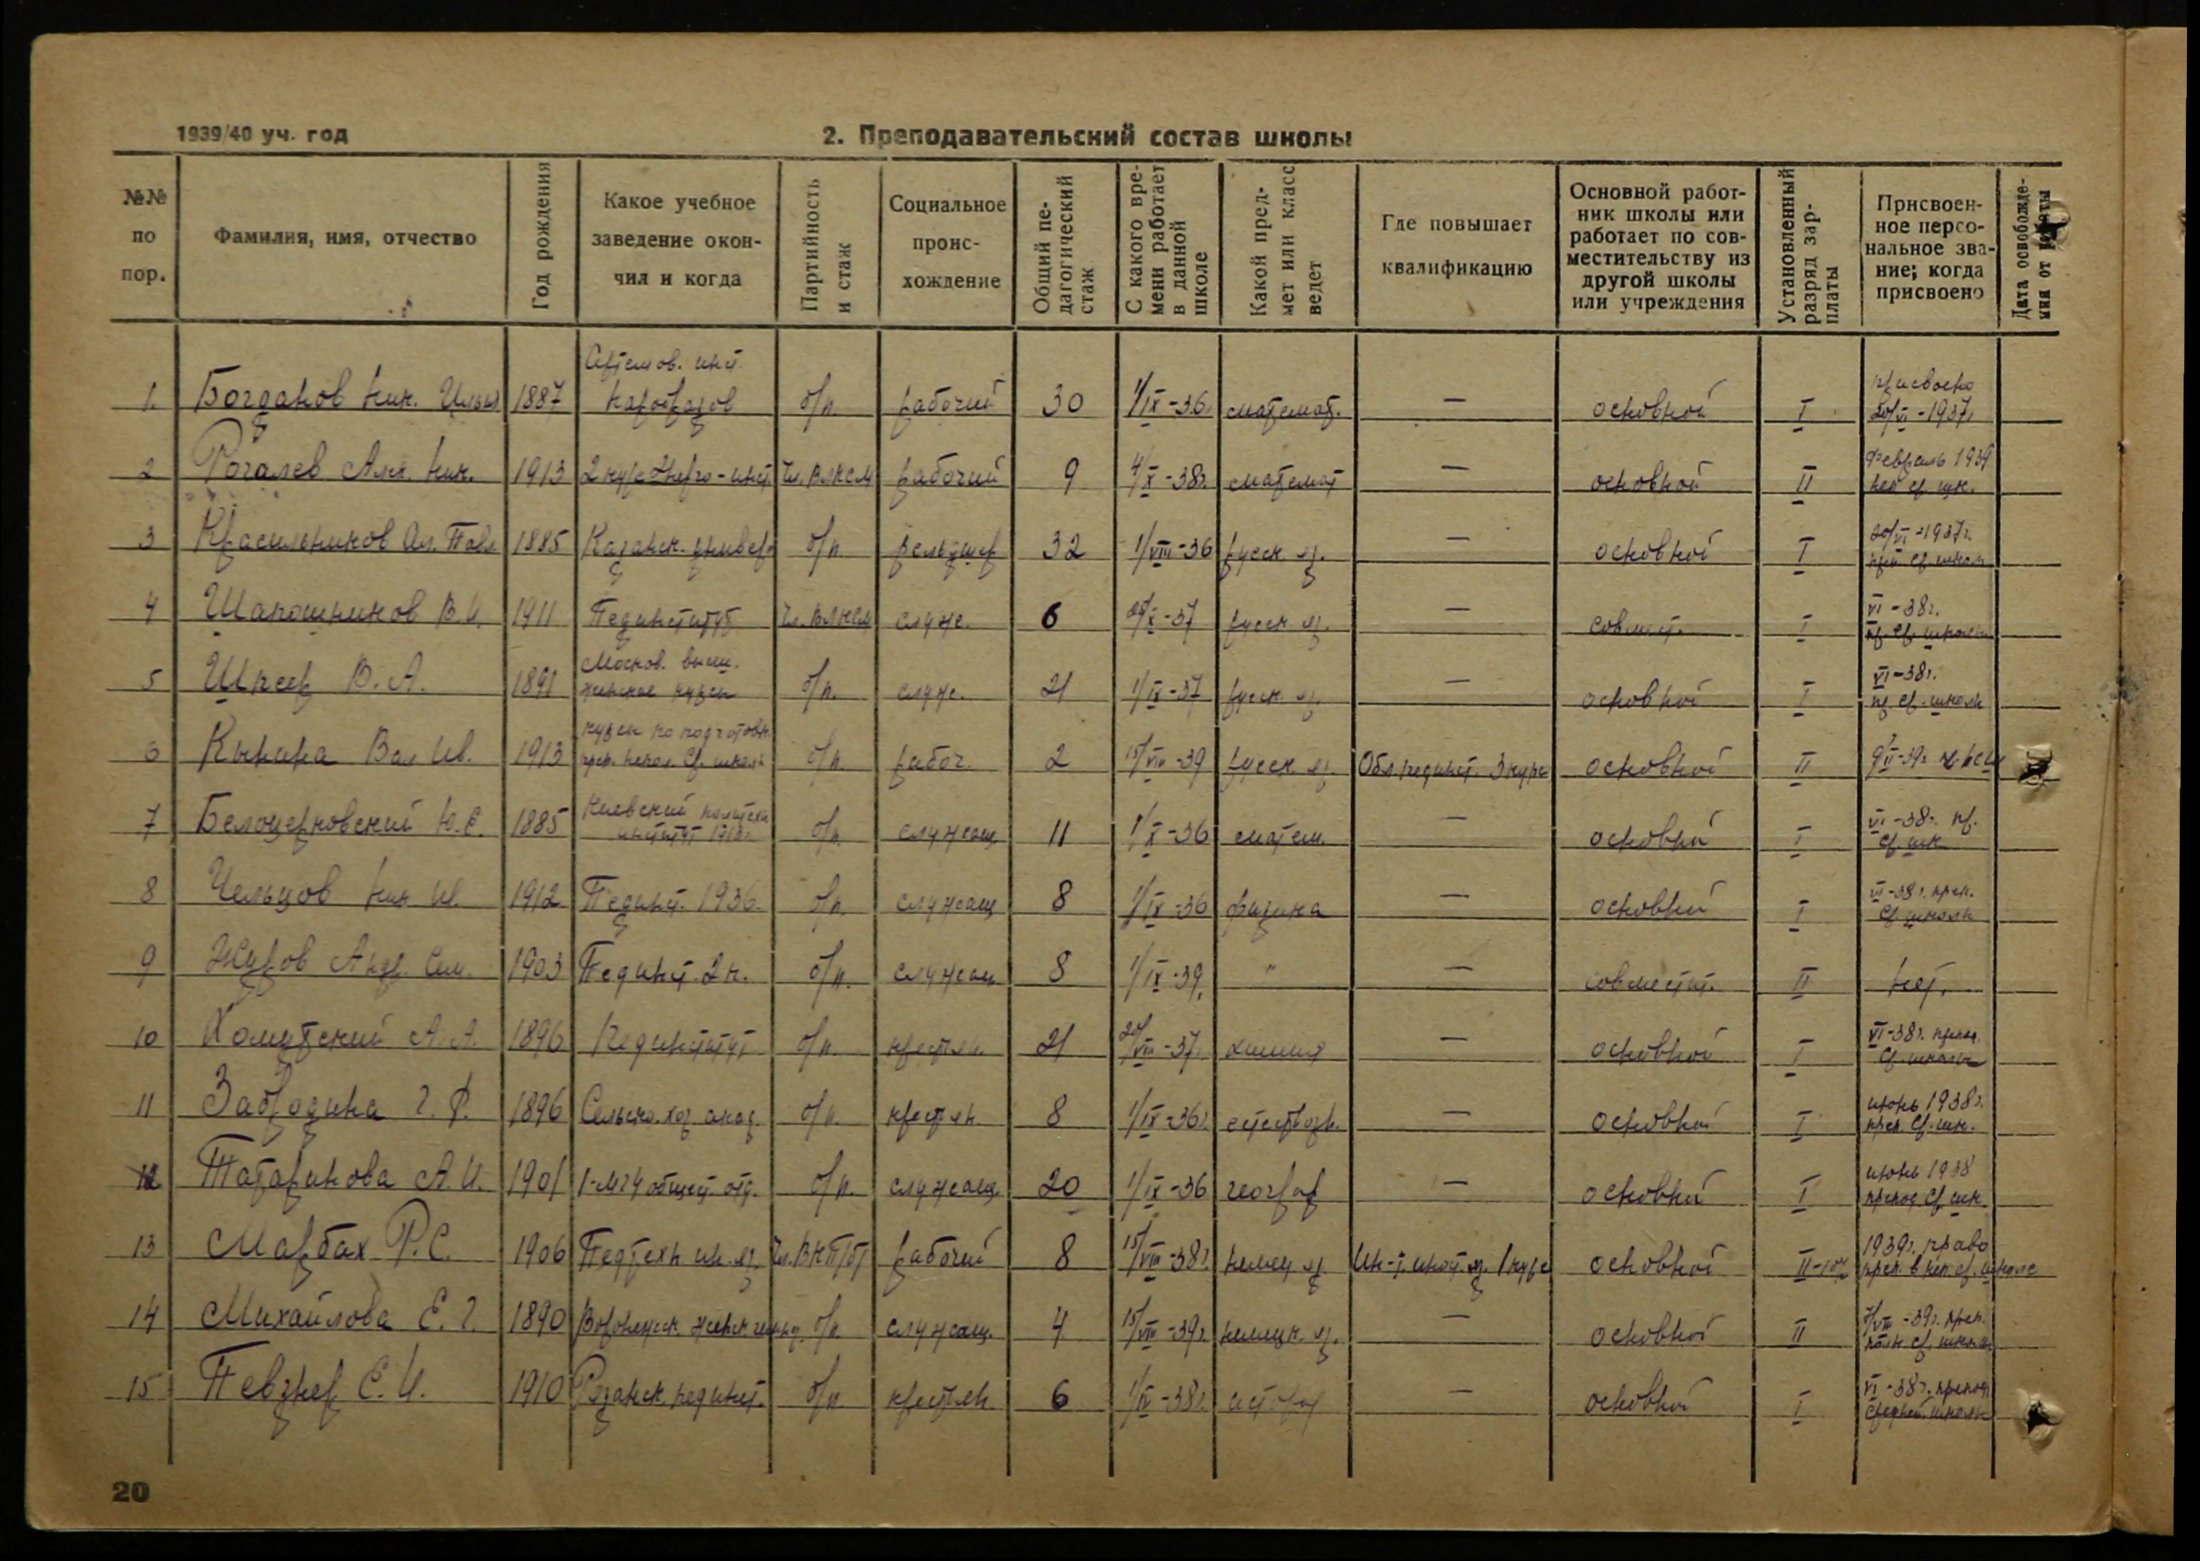 1939/40 уч. год
2. Преподавательский состав школы
№№ по пор.
Фамилия, имя, отчество
Год рождения
Какое учебное заведение окончил и когда
Партийность и стаж
Социальное происхождение
Общий педагогический стаж
С какого времени работает в данной школе
Какой предмет или класс ведет
Где повышает квалификацию
Основной работник школы или работает по совместительству из другой школы или учреждения
Установленный разряд зарплаты
Присвоенное персональное звание; когда присвоено
Дата освобождения от работы
1. Богданов Ник. 1887 инст. Наробразов б/п. рабочий 30 1/IX-36. математ. — основной I присвоено 20/VI-1937г.
2 Рогалев Ник. 1913 2 курс Энерго-инст. чл. ВЛКСМ рабочий 9 4/X-38г. математ — основной II Февраль 1939 неп ср. шк.
3 Красильников Ал. Павл 1885 Казанск. универс б/п. фельдшер 32 1/VIII-36 русск. яз. — основной I 20/VI-1937г. ср. школы
4 Шапошников В.И. 1911 Пединститут чл. ВЛКСМ служ. 6 X-37 русск. яз. — совмест. I VI-38г. пр. ср. школы
5 В. А. 1891 Москов. высш. женские курсы б/п. служ. 21 1/IX-37 русск. яз. — основной I VI-38г. пр. ср. школы
6 Вал. Ив. 1913 курсы по подготовк. преп. непол. ср. школы б/п. рабоч. 2 15/VIII-39 русск. яз. Обл. пединст. 3 курс основной II
7 Белоцерковский Ю.Е. 1885 Киевский политехн институт б/п. служащ 11 1/X-36 матем. — основной I VI-38г. пр. ср. шк
8 Чельцов Ник Ив. 1912 Пединст. 1936. б/п. служащ 8 1/IX-36 физика — основной I VI-38г. преп. ср школы
9 Журов Андр. Сем. 1903 Пединст. 2 к. б/п. служащ 8 1/IX-39. " — совместит. II Нет.
10 Хомутский А.А. 1896 Пединститут б/п. крестьян. 21 20/VIII-37. химия — основной I VI-38г. препод ср. школы
11 Забродина Г. Ф. 1896 Сельско.хоз акад. б/п. крестьян. 8 1/IX-36г. естествозн. — основной I июнь 1938г. преп. ср. шк.
12 Татаринова А.И. 1901 1-МГУ общест отд. б/п. служащ 20 1/IX-36 географ — основной I июнь 1938 препод ср шк.
13 Марбах Р.С. 1906 Педтехн ин. яз. чл. ВКП/б/ рабочий 8 15/VIII-38г. немец яз Ин-т. иност. яз. 1 курс основной 1939г. право преп. в неп. ср. школе
14 Михайлова Е. Г. 1890 Воронежск. женск б/п. служащ. 4 15/VIII-39г. немецк. яз. — основной II VIII-39г. преп. ср. школы
15 Певзнер С.И. 1910 Рязанск. пединст. б/п крестьян 6 38г. — основной I VI-38г. препод средней школы
20